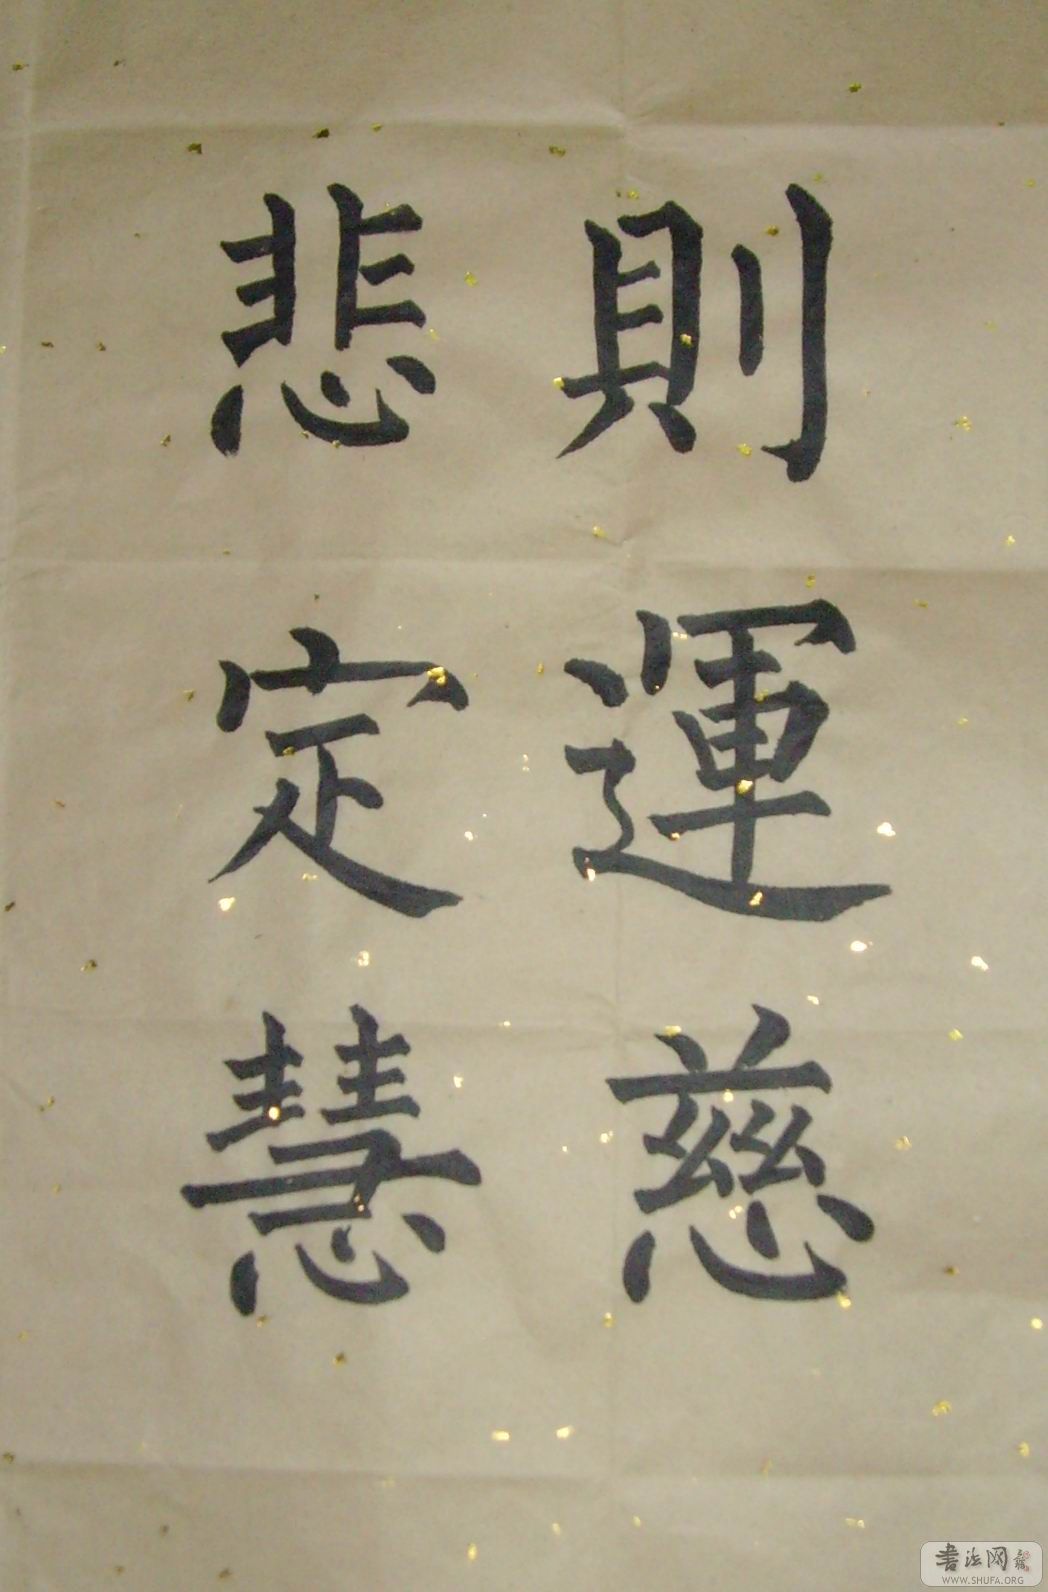 則運慈
悲定慧
書法网
WWW.SHUFA.ORG